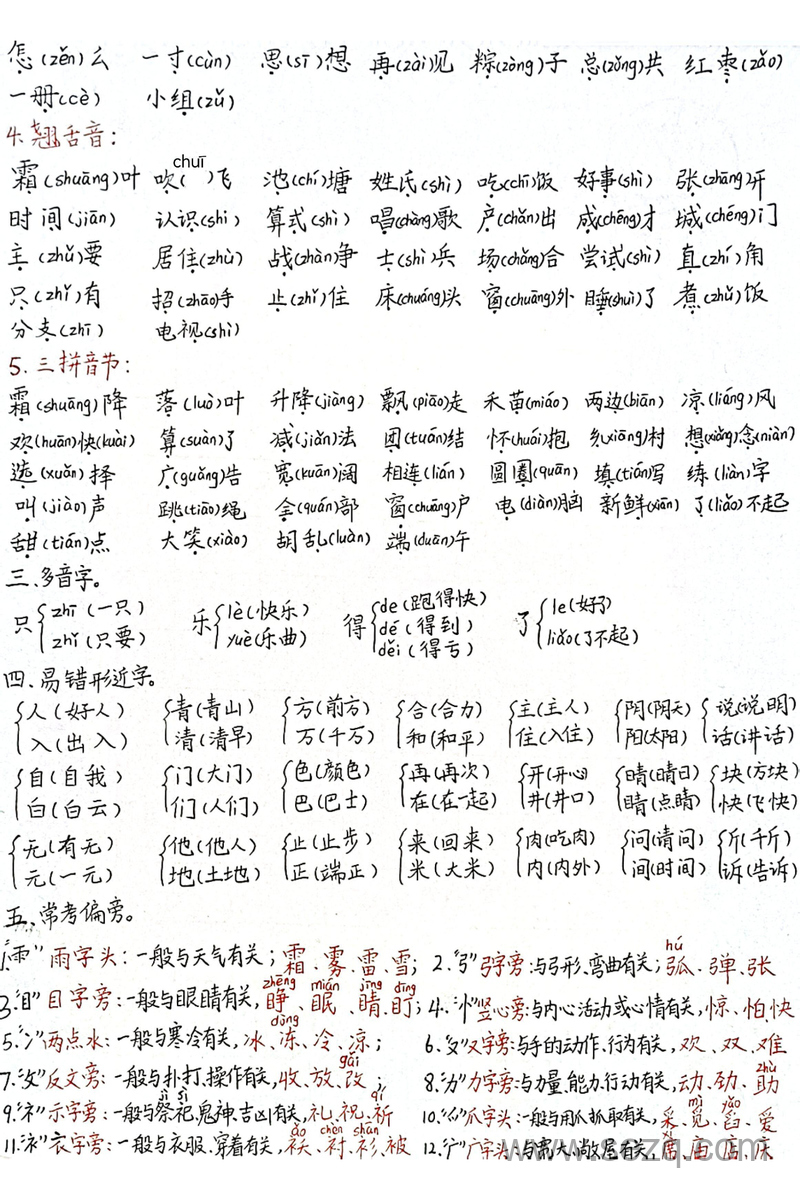 怎(zěn)么 一寸(cùn) 思(sī)想 再(zài)见 粽(zòng)子 总(zǒng)共 红枣(zǎo)
一册(cè) 小组(zǔ)
4.翘舌音:
霜(shuāng)叶 吹(chuī)飞 池(chí)塘 姓氏(shì) 吃(chī)饭 好事(shì) 张(zhāng)开
时间(jiān) 认识(shi) 算式(shì) 唱(chàng)歌 产(chǎn)出 成(chéng)才 城(chéng)门
主(zhǔ)要 居住(zhù) 战(zhàn)争 士(shì)兵 场(chǎng)合 尝试(shì) 直(zhí)角
只(zhǐ)有 招(zhāo)手 止(zhǐ)住 床(chuáng)头 窗(chuāng)外 睡(shuì)了 煮(zhǔ)饭
分支(zhī) 电视(shì)
5.三拼音节:
霜(shuāng)降 落(luò)叶 升降(jiàng) 飘(piāo)走 禾苗(miáo) 两边(biān) 凉(liáng)风
欢(huān)快(kuài) 算(suàn)了 减(jiǎn)法 团(tuán)结 怀(huái)抱 乡(xiāng)村 想(xiǎng)念(niàn)
选(xuǎn)择 广(guǎng)告 宽(kuān)阔 相连(lián) 圆圈(quān) 填(tián)写 练(liàn)字
叫(jiào)声 跳(tiào)绳 全(quán)部 窗(chuāng)户 电(diàn)脑 新鲜(xiān) 了(liǎo)不起
甜(tián)点 大笑(xiào) 胡乱(luàn) 端(duān)午
三、多音字。
只{zhī(一只) 乐{lè(快乐) 得{de(跑得快) 了{le(好了)
zhǐ(只要) yuè(乐曲) dé(得到) liǎo(了不起)
děi(得亏)
四、易错形近字。
{人(好人) {青(青山) {方(前方) {合(合力) {主(主人) {阴(阴天) {说(说明)
入(出入) 清(清早) 万(千万) 和(和平) 住(入住) 阳(太阳) 话(讲话)
{自(自我) {门(大门) {色(颜色) {再(再次) {开(开心) {晴(晴日) {块(方块)
白(白云) 们(人们) 巴(巴士) 在(在一起) 井(井口) 睛(点睛) 快(飞快)
{无(有无) {他(他人) {止(止步) {来(回来) {肉(吃肉) {问(请问) {斤(千斤)
元(一元) 地(土地) 正(端正) 米(大米) 内(内外) 间(时间) 诉(告诉)
五、常考偏旁。
1."雨"雨字头:一般与天气有关;霜、雾、雷、雪; 2."弓"弓字旁:与弓形、弯曲有关;弧(hú)、弹、张
3."目"目字旁:一般与眼睛有关,睁(zhēng)、眠(mián)、睛(jīng)、盯(dīng); 4."忄"竖心旁:与内心活动或心情有关,惊、怕、快
5."冫"两点水:一般与寒冷有关,冰、冻(dòng)、冷、凉; 6."又"又字旁:与手的动作、行为有关,欢、双、难
7."攵"反文旁:一般与扑打、操作有关,收、放、改(gǎi); 8."力"力字旁:与力量、能力、行动有关,动、劲、助(zhù)
9."礻"示字旁:一般与祭(jì)祀(sì)、鬼神、吉凶有关,礼、祝、祈(qí) 10."爫"爪字头:一般与用爪抓取有关,采、觅(mì)、舀(yǎo)、爱
11."衤"衣字旁:一般与衣服、穿着有关,袄(ǎo)、衬(chèn)、衫(shān)、被 12."广"广字头:与高大、尚敞屋有关,席(xí)、庙、店、床